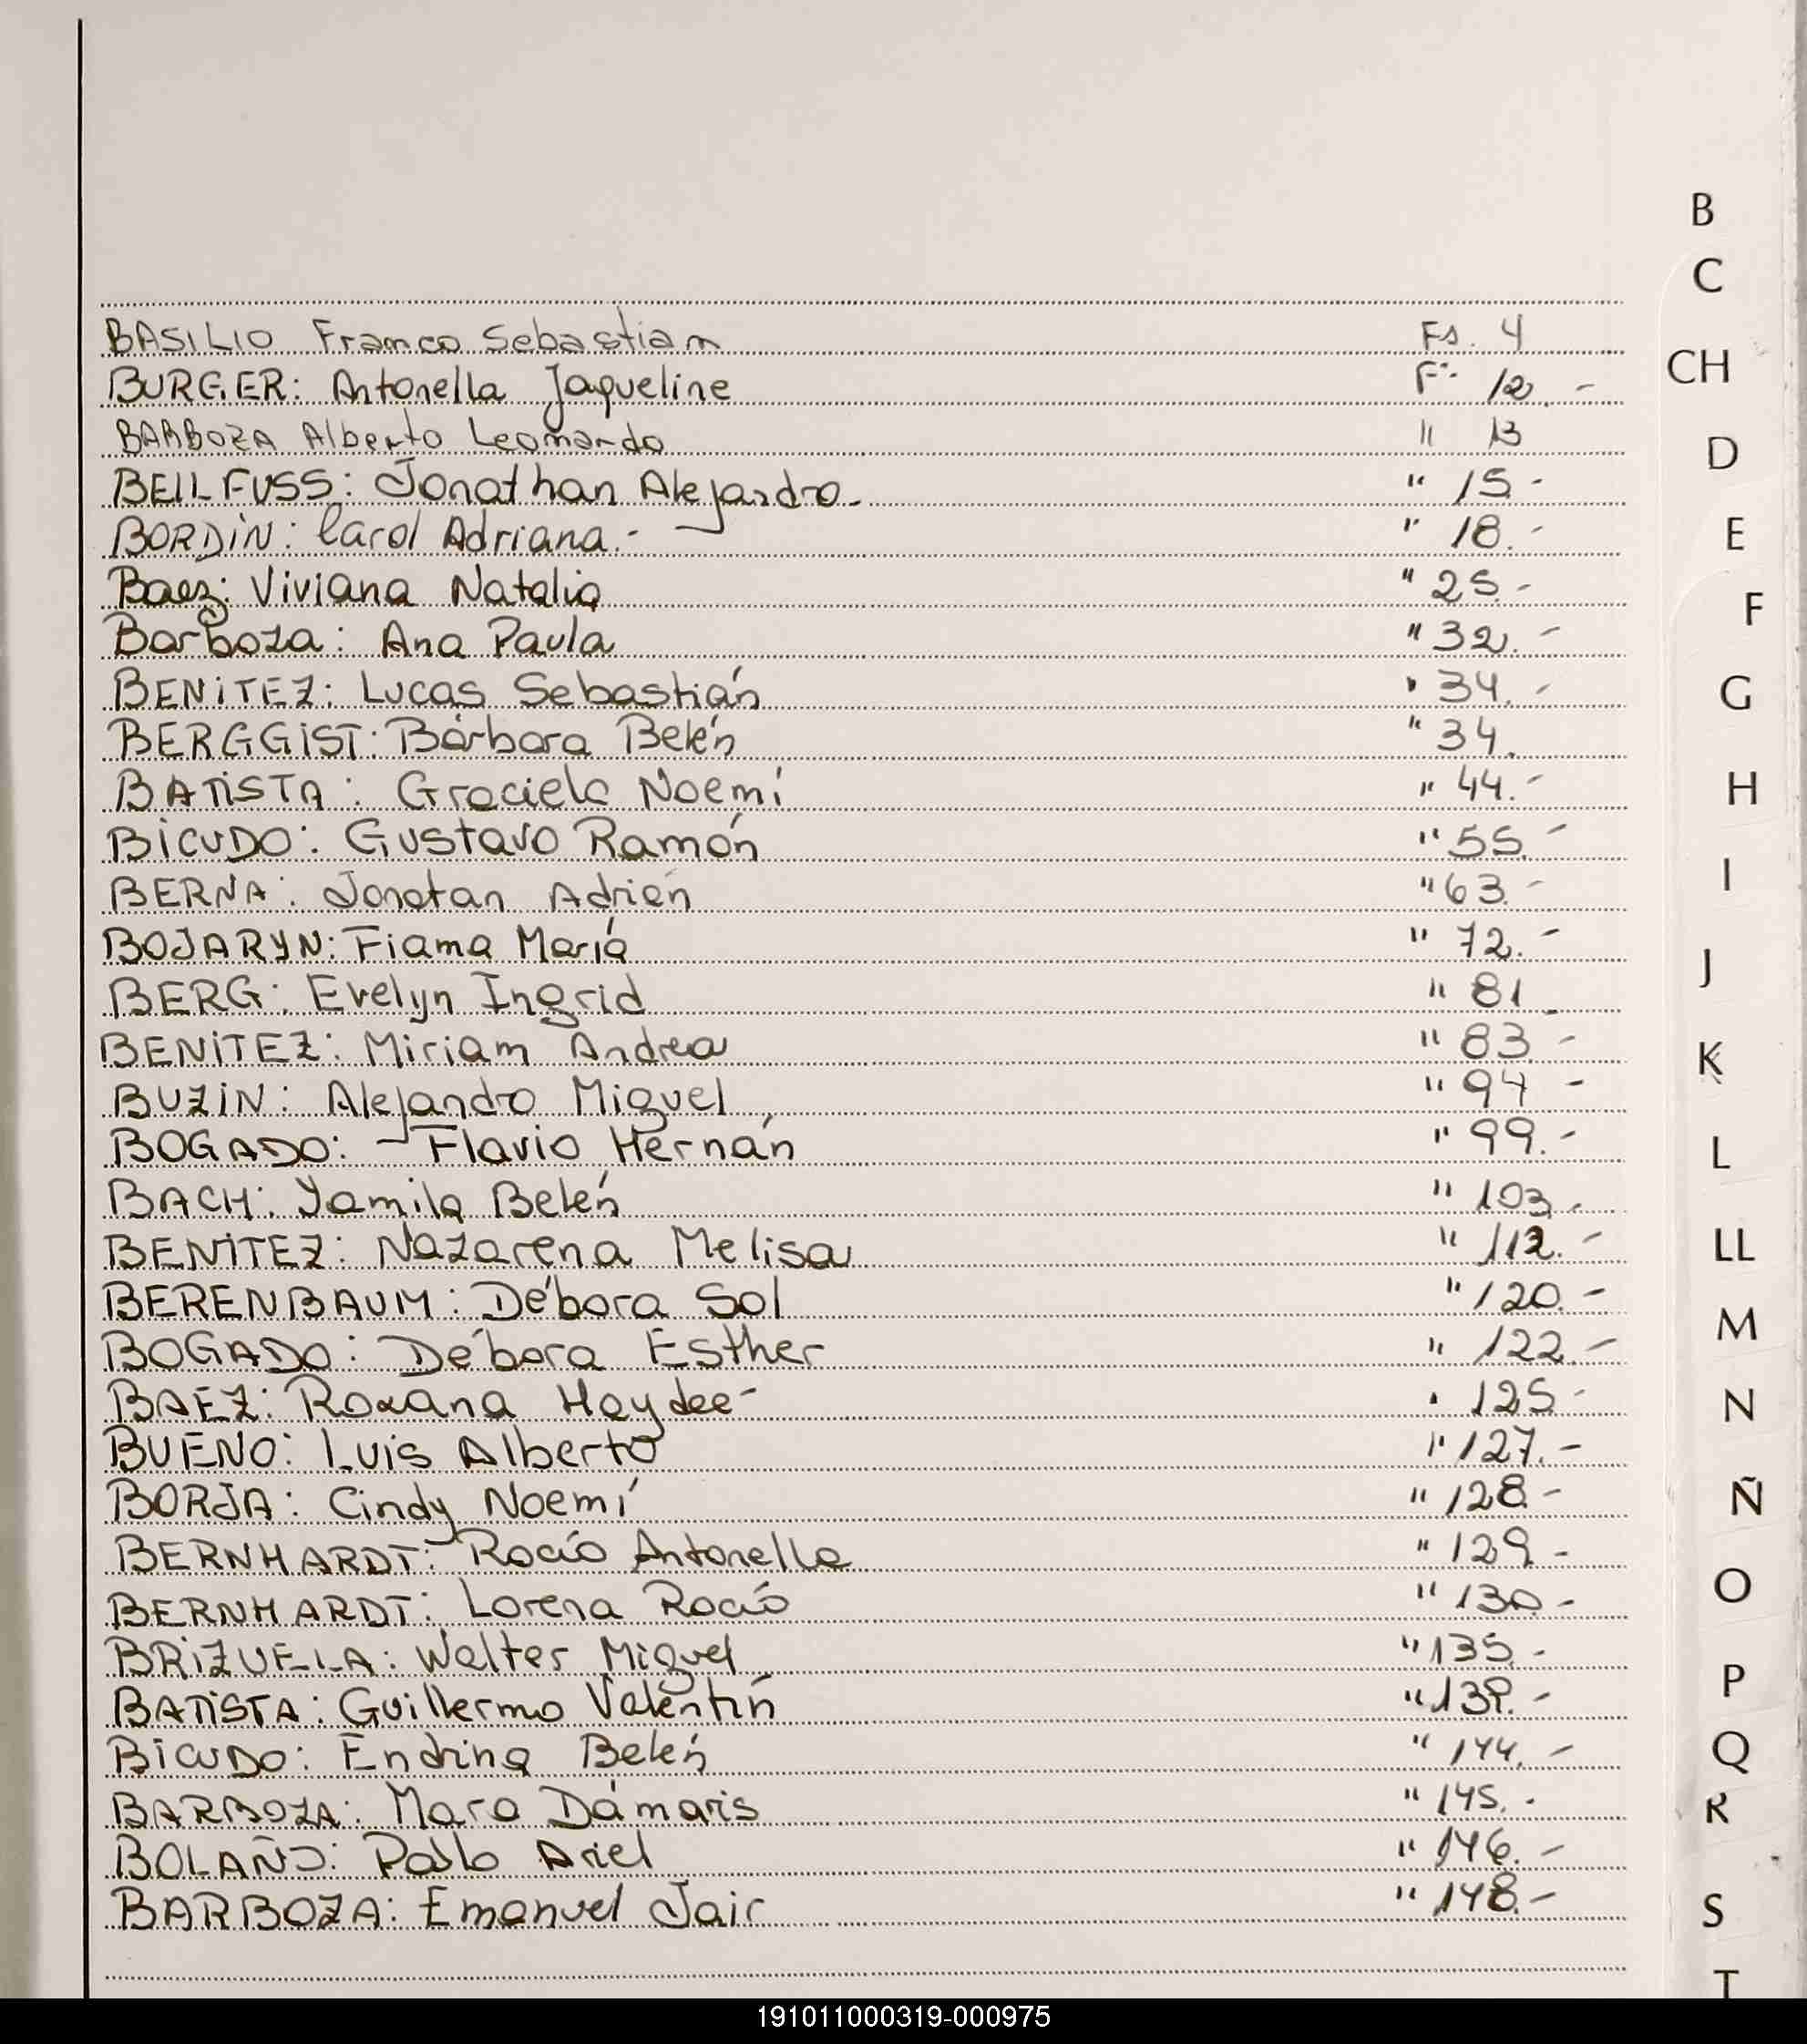 B
C
BASILIO Franco Sebastian Fs. 4
CH
BURGER: Antonella Jaqueline F:- 12.-
BARBOZA Alberto Leonardo " 13
D
BEILFUSS: Jonathan Alejandro.- " 15.-
BORDIN: Carol Adriana.- " 18.-
E
Baez: Viviana Natalia " 25.-
F
Barboza: Ana Paula " 32.-
BENITEZ: Lucas Sebastián " 34.-
G
BERGGIST: Bárbara Belén " 34.
BATISTA: Graciela Noemí " 44.-
H
BICUDO: Gustavo Ramón " 55.-
BERNA: Jonatan Adrién " 63.-
I
BOJARYN: Fiama María " 72.-
J
BERG: Evelyn Ingrid " 81.
BENITEZ: Miriam Andrea " 83.-
K
BUZIN: Alejandro Miguel " 94-
BOGADO: Flavio Hernán " 99.-
L
BACH: Yamila Belén " 103.-
BENITEZ: Nazarena Melisa " 112.-
LL
BERENBAUM: Débora Sol " 120.-
M
BOGADO: Débora Esther " 122.-
BAEZ: Roxana Haydee- " 125-
N
BUENO: Luis Alberto " 127.-
BORJA: Cindy Noemí " 128.-
Ñ
BERNHARDT: Rocío Antonella " 129.-
O
BERNHARDT: Lorena Rocío " 130.-
BRIZUELA: Walter Miguel " 135.-
P
BATISTA: Guillermo Valentín " 139.-
BICUDO: Endrina Belén " 144.-
Q
BARBOZA: Mara Dámaris " 145.-
R
BOLAÑO: Pablo Ariel " 146.-
BARBOZA: Emanuel Jair " 148.-
S
T
191011000319-000975